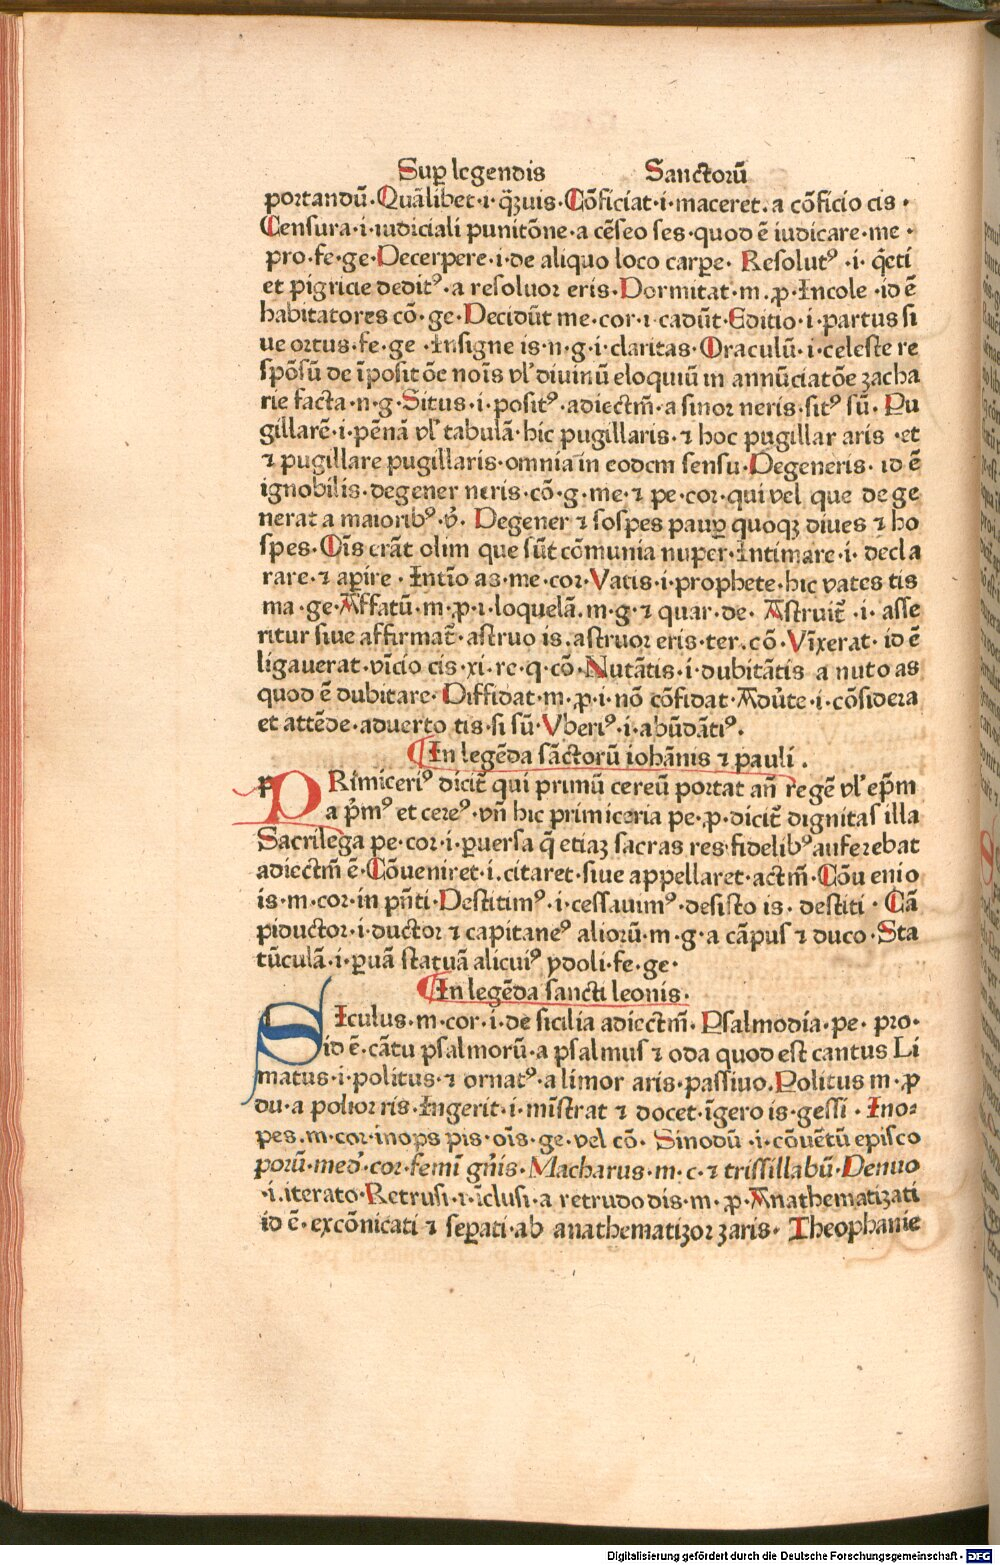 Suꝑ legendis Sanctorū
portandū·Quālibet·ı·q̄ꝫuis·Cōficiat·i·maceret.a cōficio cis·
Censura·i·iudiciali punitōne·a cēseo ses·quod ē iudicare·me·
pro·fe·ge·Decerpere·i·de aliquo loco carpe· Resolutꝰ ·i· q̄eti
et pigricie deditꝰ·a resoluor eris·Dormitat·m.ꝓ·Incole·id ē
habitatores cō·ge·Decidūt me·cor·ı·cadūt·Editio·i·partus si
ue ortus·fe·ge·Insigne is·n·g·i·claritas·Oraculū·i·celeste re
spōsū de īpositōe noīs vl' diuinū eloquiū in annūciatōe zacha
rie facta·n·g·Situs·i·positꝰ·adiectm̄·a sinor neris·sitꝰ sū·Pu
gillarē·i·pēnā vl' tabulā·hic pugillaris·ꝛ hoc pugillar aris·et
ꝛ pugillare pugillaris·omnia in eodem sensu·Degeneris· id ē
ignobilis·degener neris·cō·g·me·ꝛ pe·cor·qui vel que de ge
nerat a maioribꝰ·v̓. Degener ꝛ sospes pauꝑ quoqꝫ diues ꝛ ho
spes·Oīs erāt olim que sūt cōmunia nuper·Intimare·i· decla
rare·ꝛ aꝑire·Intīo as·me·cor·Vatis·i·prophete·hic vates tis
ma·ge·Affatū·m·ꝓ·ı·loquelā.m·g·ꝛ quar·de· Astruit̄ ·i· asse
ritur siue affirmat̄·astruo is.astruor eris·ter.cō·Vīxerat· id ē
ligauerat·vīcio cis·xi·re·q·cō·Nutātis·i·dubitātis a nuto as
quod ē dubitare·Diffidat·m·ꝓ·i·nō cōfidat·Adūte·i·cōsidera
et attēde·aduerto tis·si sū·Vberiꝰ·i·abūdātiꝰ.
¶In legēda sāctorū iohānis ꝛ pauli.
p PRimiceriꝰ dicit̄ qui primū cereū portat an̄ regē vl' ep̄m
a p̄mꝰ et cereꝰ·vn̄ hic primiceria pe·ꝓ·dicit̄ dignitas illa
Sacrilega pe·cor·i·ꝑuersa q̄ etiaꝫ sacras res·fidelibꝰ auferebat
adiectm̄ ē·Cōueniret·i.citaret·siue appellaret·actm̄·Cōu enio
is·m·cor·in pn̄ti·Destitimꝰ·i·cessauimꝰ·desisto is·destiti·Cā
piductor·i·ductor ꝛ capitaneꝰ aliorū·m·g·a cāpus ꝛ duco·Sta
tūculā·i·ꝑuā statuā alicuiꝰ ydoli·fe·ge·
¶In legēda sancti leonis·
SIculus·m·cor·i·de sicilia adiectm̄·Psalmodia·pe·pro·
id ē·cātu psalmorū·a psalmus ꝛ oda quod est cantus Li
matus·i·politus·ꝛ ornatꝰ·a limor aris·passiuo.Politus m·ꝓ
du·a polior ris·Ingerit·i·mīstrat ꝛ docet·īgero is·gessi·Ino⸗
pes.m·cor·inops pis·oīs·ge·vel cō· Sinodū ·i·cōuētū episco
porū·med̓·cor·femī gn̄is·Macharus·m·c·ꝛ trissillabū·Denuo
·i.iterato·Retrusi·ı·īclusi·a retrudo dis·m·ꝓ·Anathematizati
id ē·excōnicati ꝛ seꝑati·ab anathematizor zaris· Theophanie
Digitalisierung gefördert durch die Deutsche Forschungsgemeinschaft - DFG